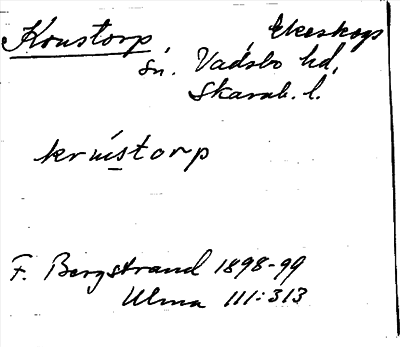 Konstorp Ekeskogs
sn. Vadsbo hd,
Skarab. l.
krústorp
F. Bergstrand 1898-99
Ulma 111:313